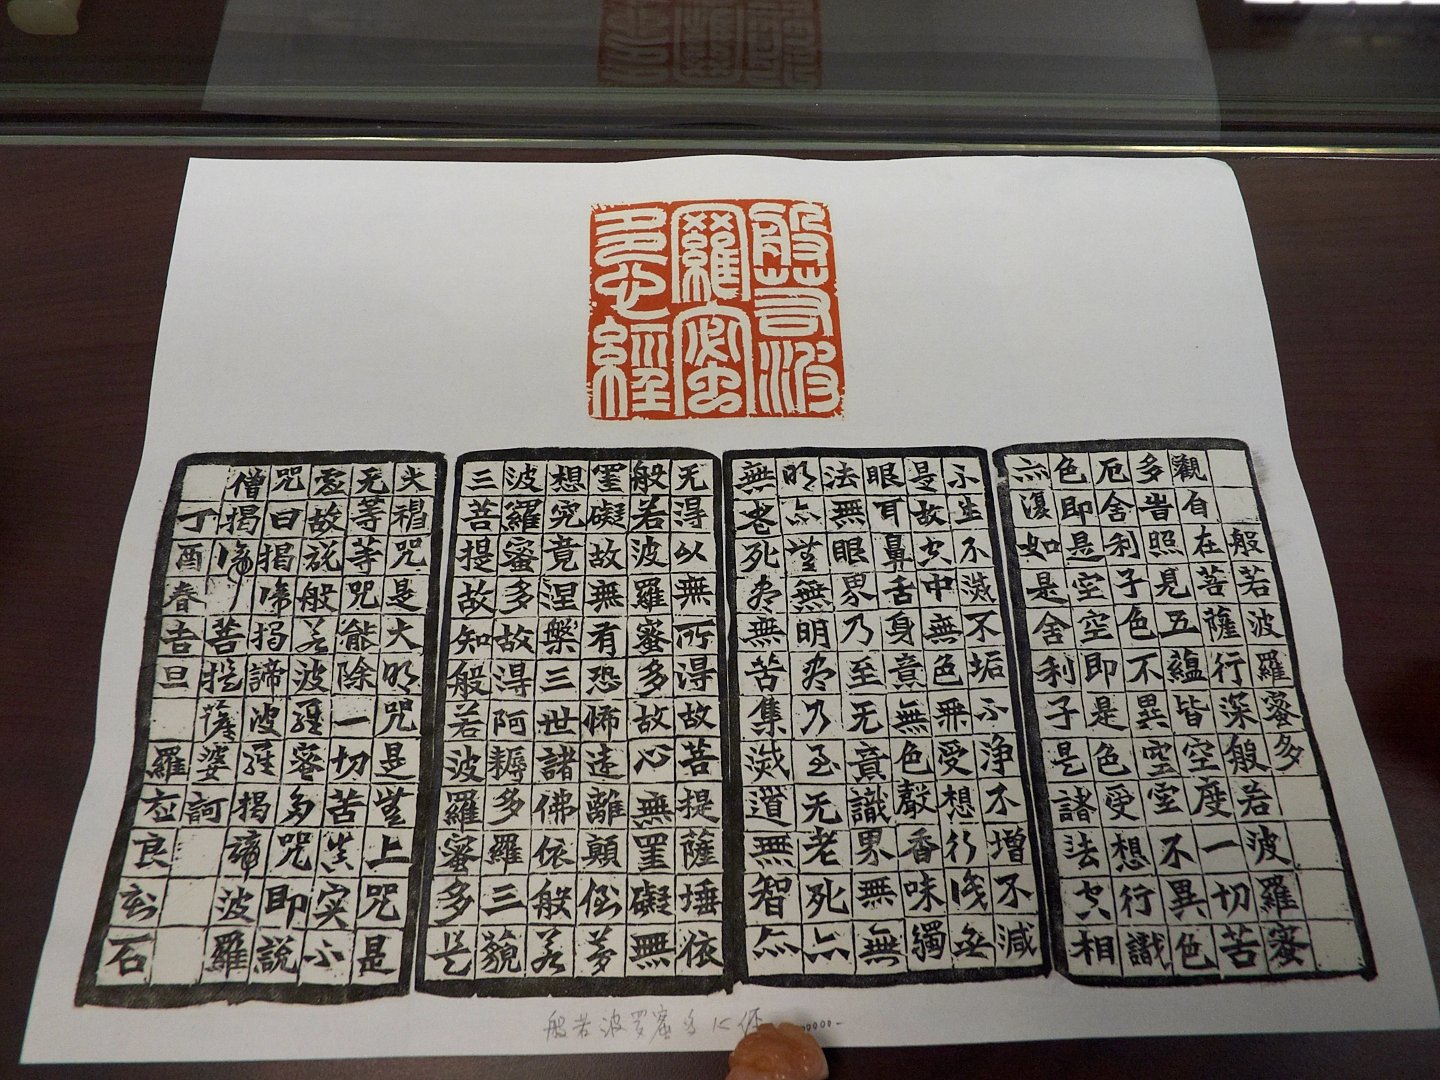 般若波
羅蜜
多心經
般若波羅蜜多
觀自在菩薩行深般若波羅蜜
多旹照見五蘊皆空度一切苦
厄舍利子色不異空空不異色
色即是空空即是色受想行識
亦復如是舍利子是諸法空相
不生不滅不垢不淨不增不減
是故空中無色無受想行識無
眼耳鼻舌身意無色聲香味觸
法無眼界乃至无意識界無無
明亦無無明盡乃至无老死亦
無老死盡無苦集滅道無智亦
无得以無所得故菩提薩埵依
般若波羅蜜多故心無罣礙無
罣礙故無有恐怖遠離顛倒夢
想究竟涅槃三世諸佛依般若
波羅蜜多故得阿耨多羅三藐
三菩提故知般若波羅蜜多是
大神咒是大明咒是無上咒是
无等等咒能除一切苦真实不
虛故說般若波羅蜜多咒即說
咒曰揭啼揭諦波羅揭諦波羅
僧揭啼菩提薩婆訶
丁酉春吉旦 羅应良玄石
般若波罗蜜多心经